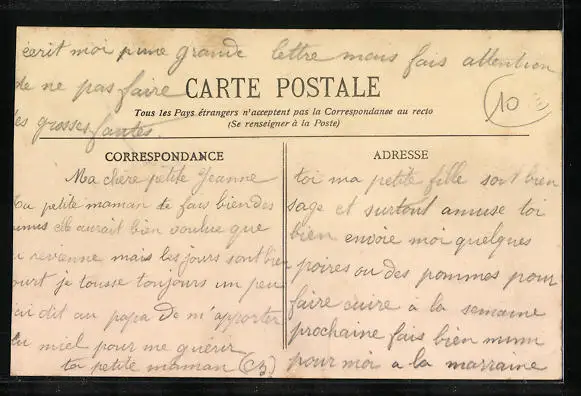 écrit moi une grande lettre mais fais attention
de ne pas faire
CARTE POSTALE
les grosses fautes.
Tous les Pays étrangers n'acceptent pas la Correspondance au recto
(Se renseigner à la Poste)
10
CORRESPONDANCE
Ma chère petite Jeanne
ta petite maman te fais bien des
elle aurait bien voulue que
revienne mais les jours sont bien
court je tousse toujours un peu
dit au papa de m'apporter
du miel pour me guérir
ta petite maman (CB)
ADRESSE
toi ma petite fille soit bien
sage et surtout amuse toi
bien envoie moi quelques
poires ou des pommes pour
faire cuire a la semaine
prochaine fais bien mimi
pour moi a la marraine